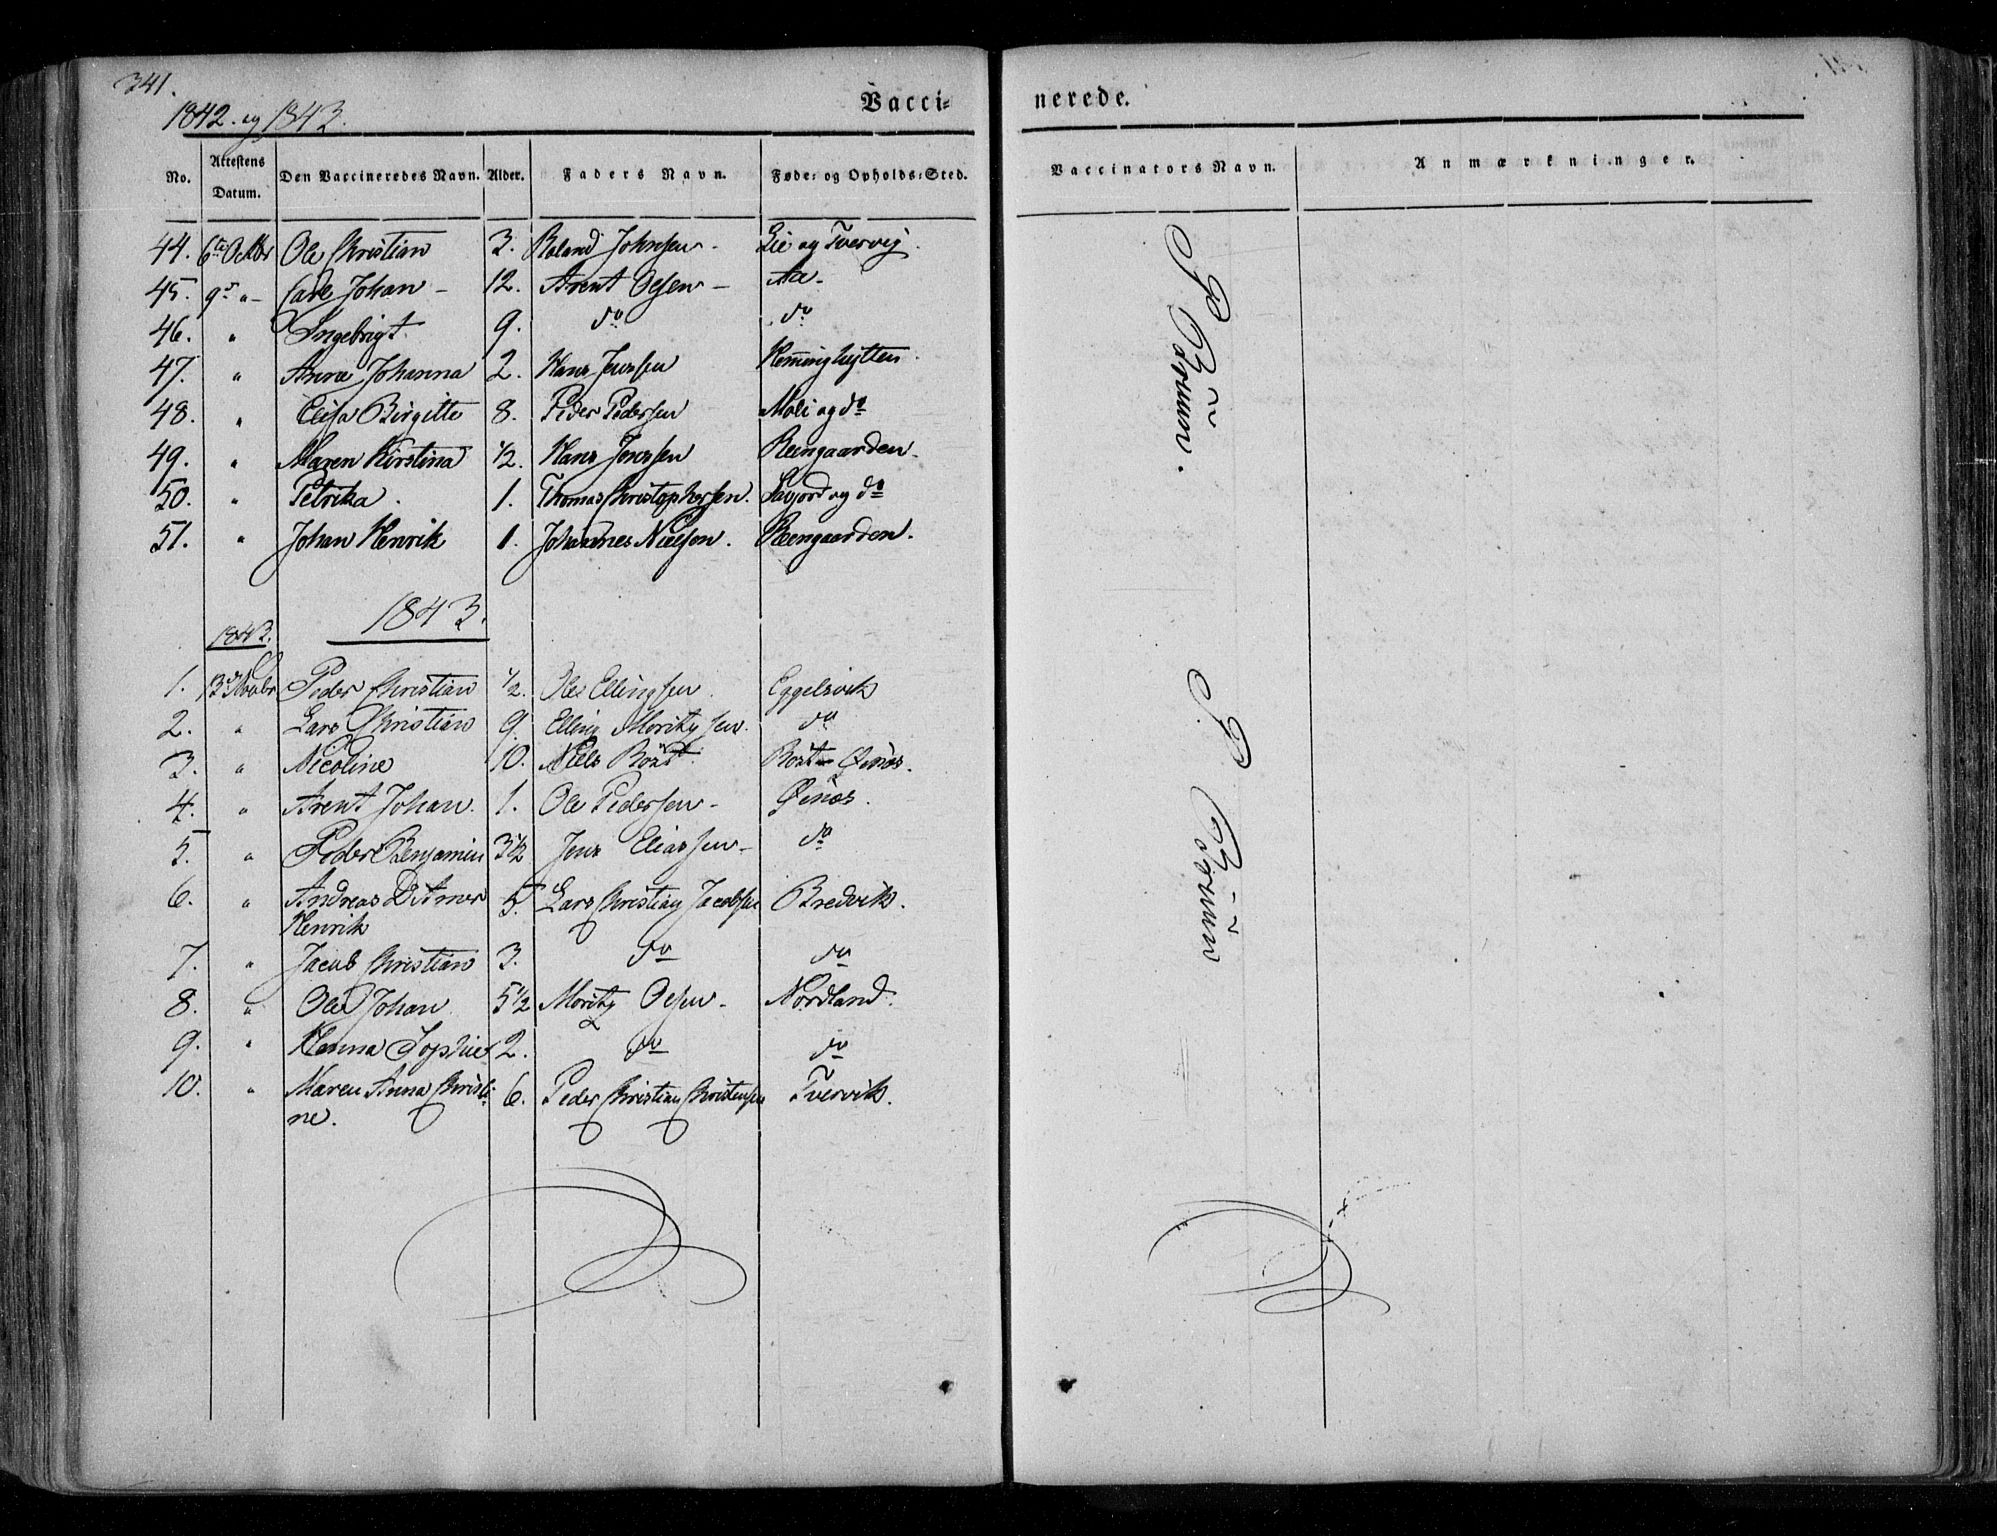 341.
1842. og 1843.
Vacci= nerede.
No. Attestens Datum. Den Vaccineredes Navn. Alder. Faders Navn. Føde- og Opholds-Sted. Vaccinators Navn. Anmærkninger.
44. 6te Octbr Ole Christian 3. Roland Johnsen - Lie og Tvervig.
45. 9d " - Carl Johan - 12. Arent Olsen - Aa -
46. " Ingebrigt. 9. do do
47. " Anne Johanna 2. Hans Jenssen Hemminghytten.
48. " Elisa Birgitte 8. Peder Pedersen Moli og do
49. " Maren Kirstina 1/2. Hans Jenssen Reengaarden.
50. " Petrika. 1. Thomas Christophersen. Løgjord og do
51. " Johan Henrik 1. Johannes Nielsen. Reengaarden.
1843.
1842.
1. 13d Novbr Peder Christian 1/2. Ole Ellingsen. Eggelsvik
2. " Lars Christian 9. Elling Moritzsen. do
3. " Nicoline 10. Niels Röst. Röst Øinæs.
4. " Arent Johan. 1. Ole Pedersen - Øinæs.
5. " Peder Benjamin 3 1/2 Jens Eliassen - do
6. " Andreas Ditmer 5. Lars Christian Jacobsen Bredvik.
Henrik
7. " Jacob Christian 3. do do
8. " Ole Johan 5 1/2 Moritz Olsen - Nordland.
9. " Hanna Sophie 2. do do
10. " Maren Anna Christi- 6. Peder Christian Christensen Tvervik.
ne.